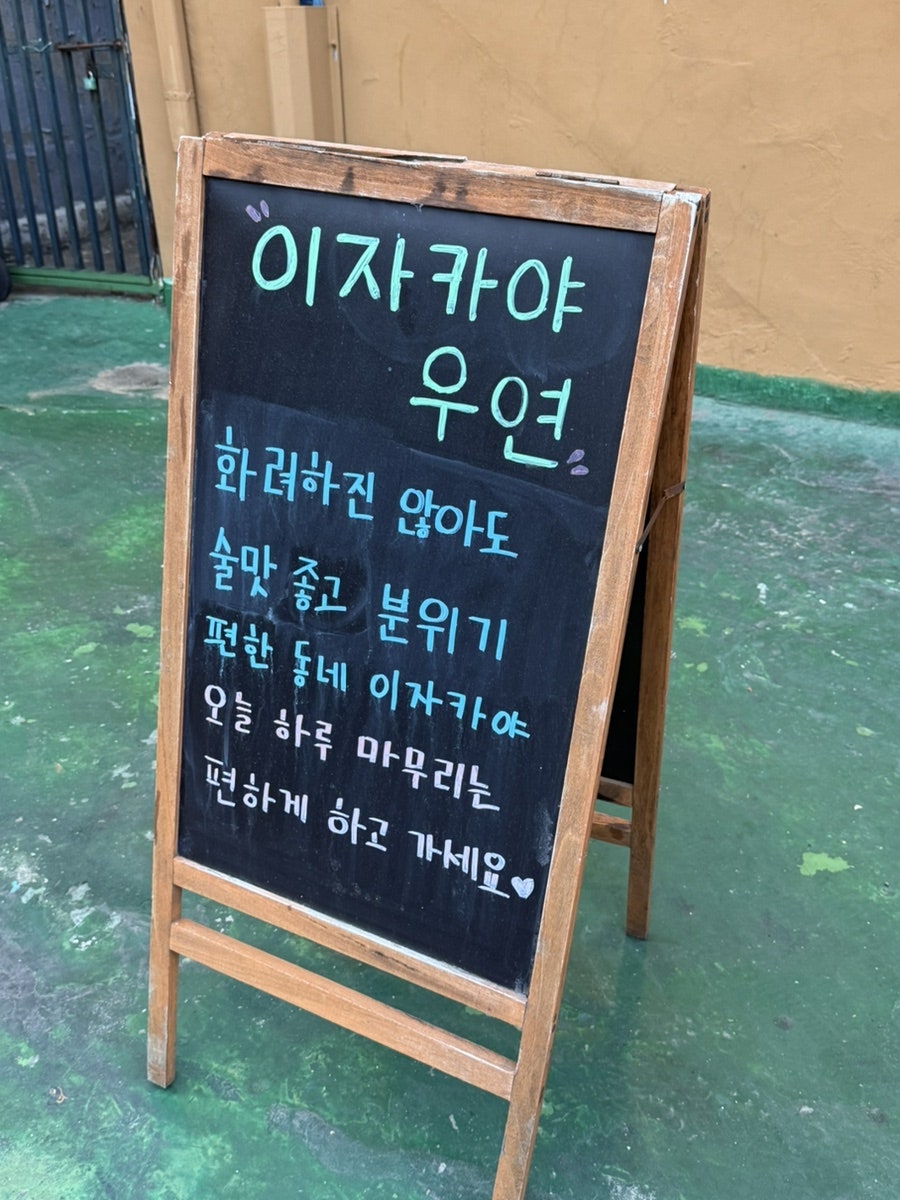 이자카야
우연
화려하진 않아도
술맛 좋고 분위기
편한 동네 이자카야
오늘 하루 마무리는
편하게 하고 가세요♥